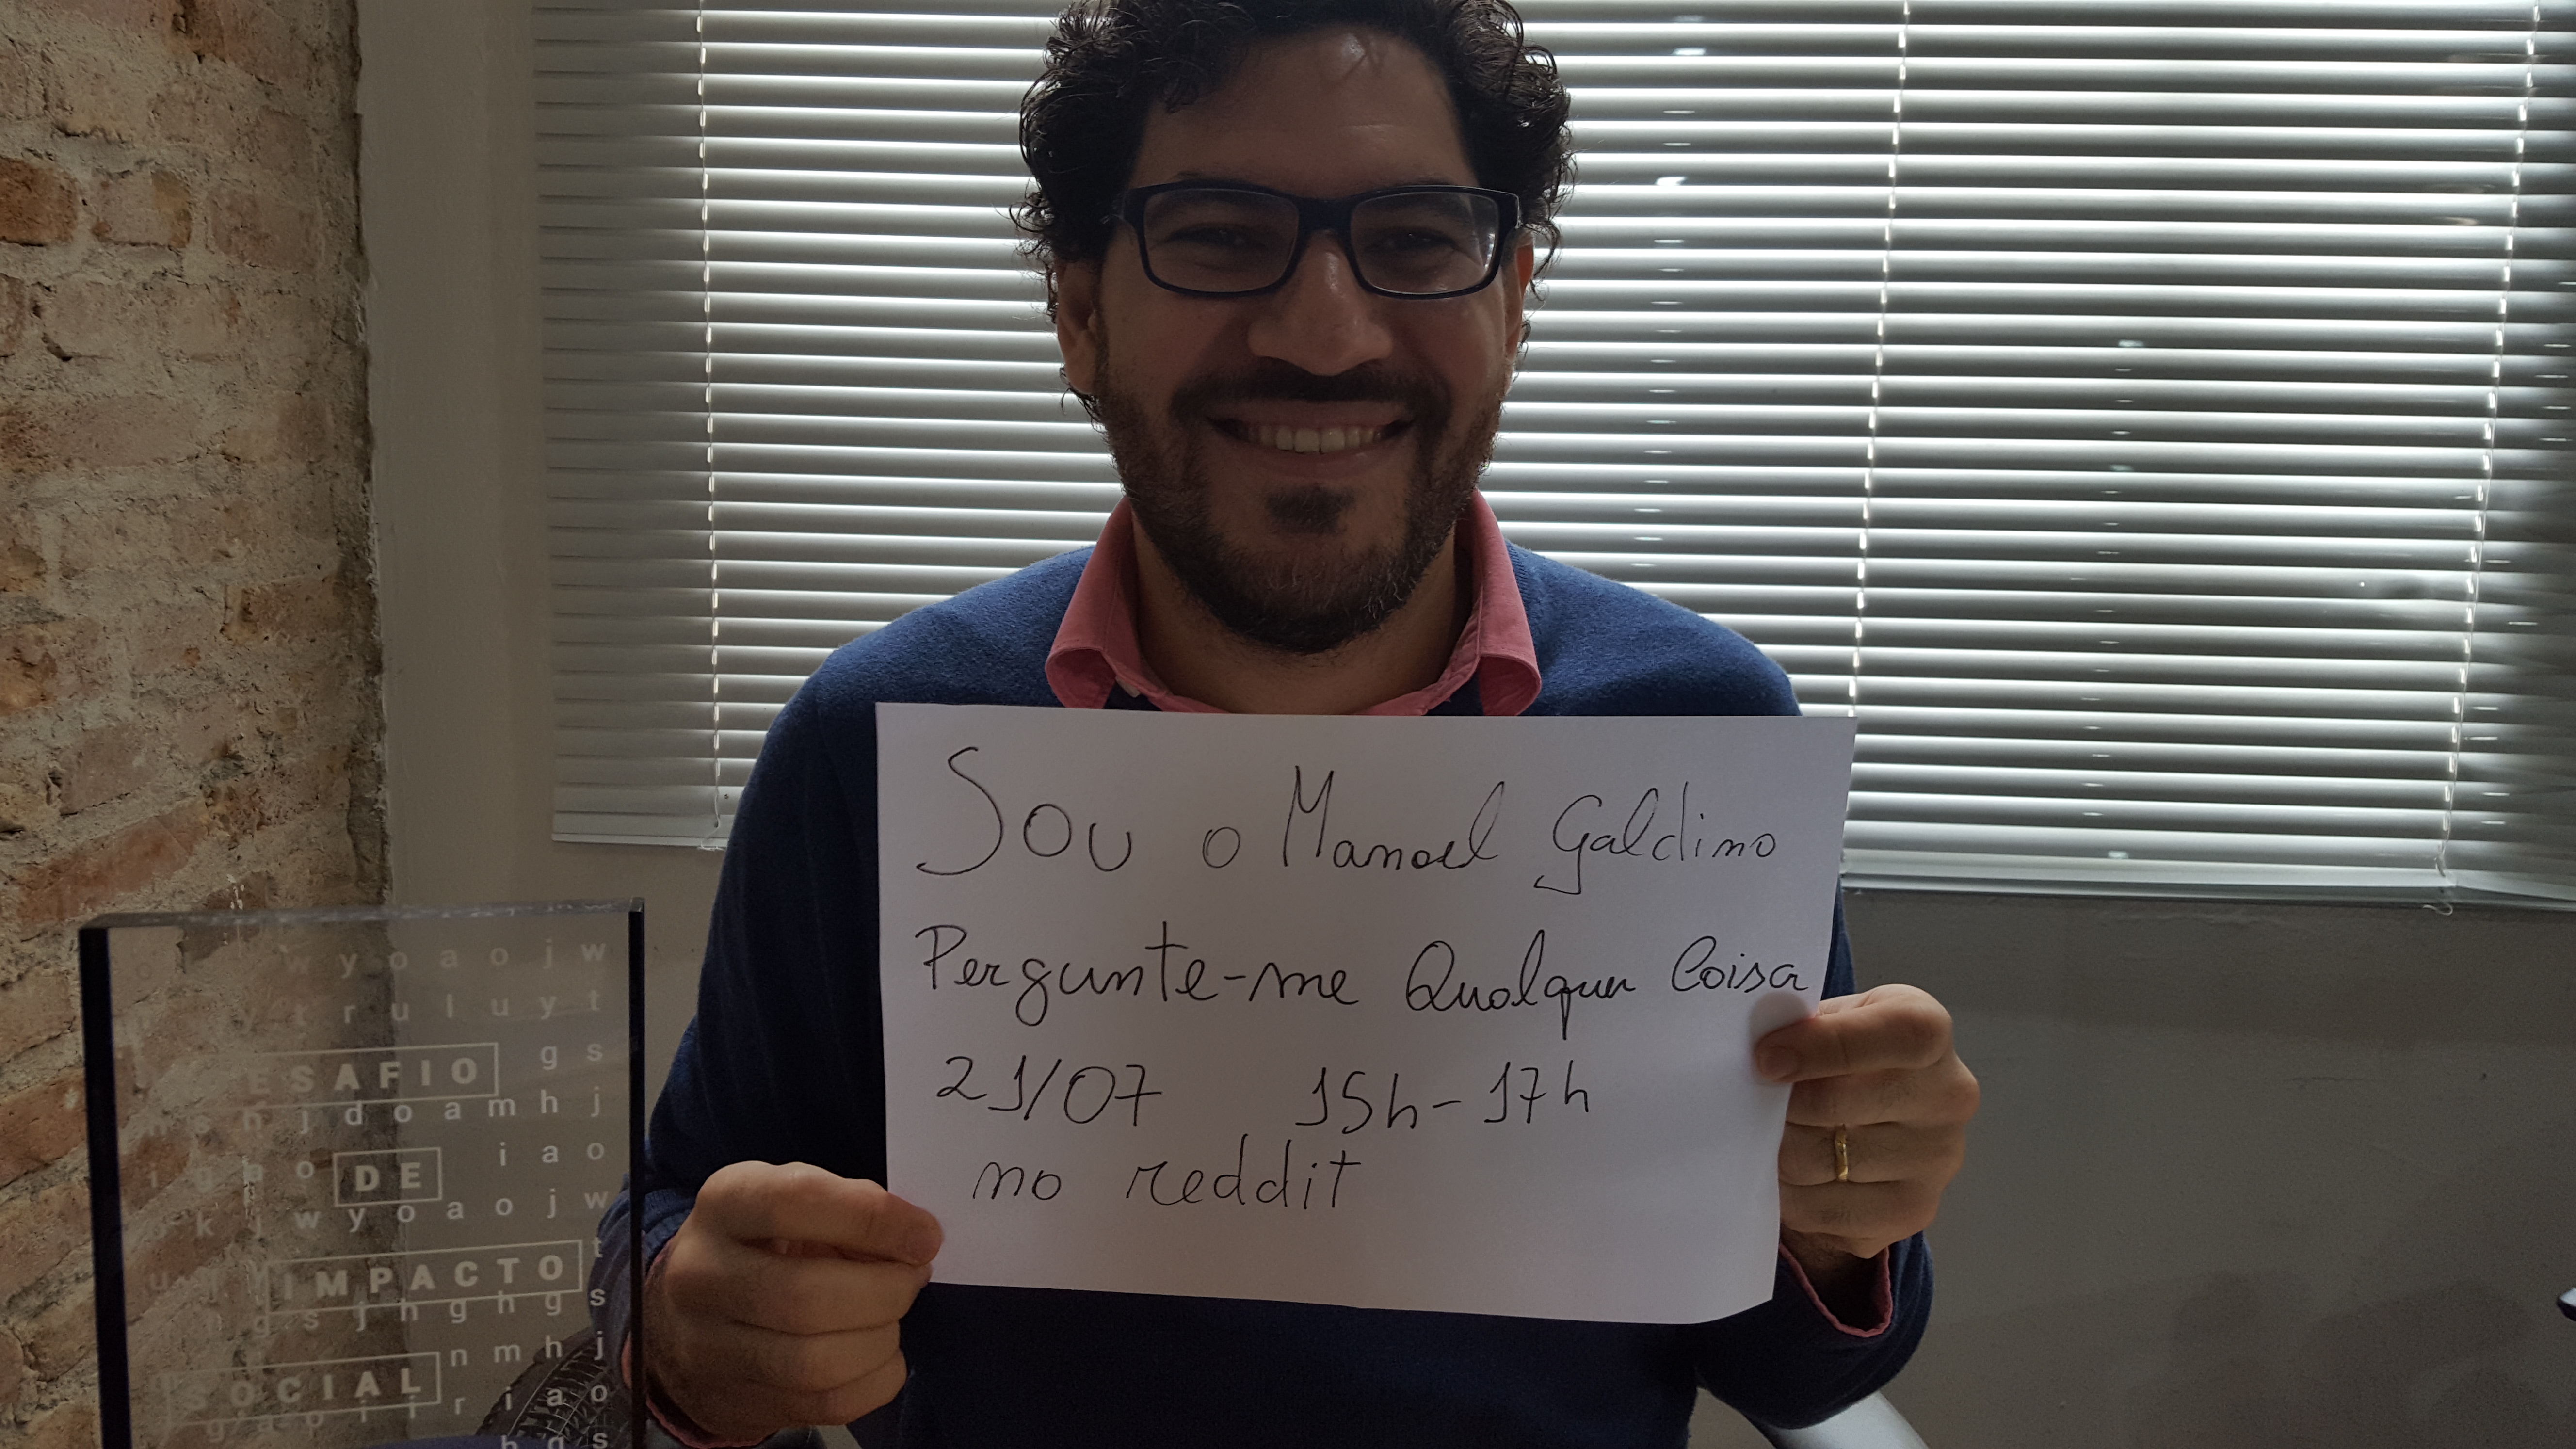 Sou o Manoel Galdino
Pergunte-me Qualquer Coisa
21/07 15h-17h
no reddit
w y o a o j w
t r u l u y t
ESAFIO g s
h j d o a m h j
o DE i a o
k j w y o a o j w
IMPACTO t
g s j h g h g s
n m h j
SOCIAL
r i a o
h g s